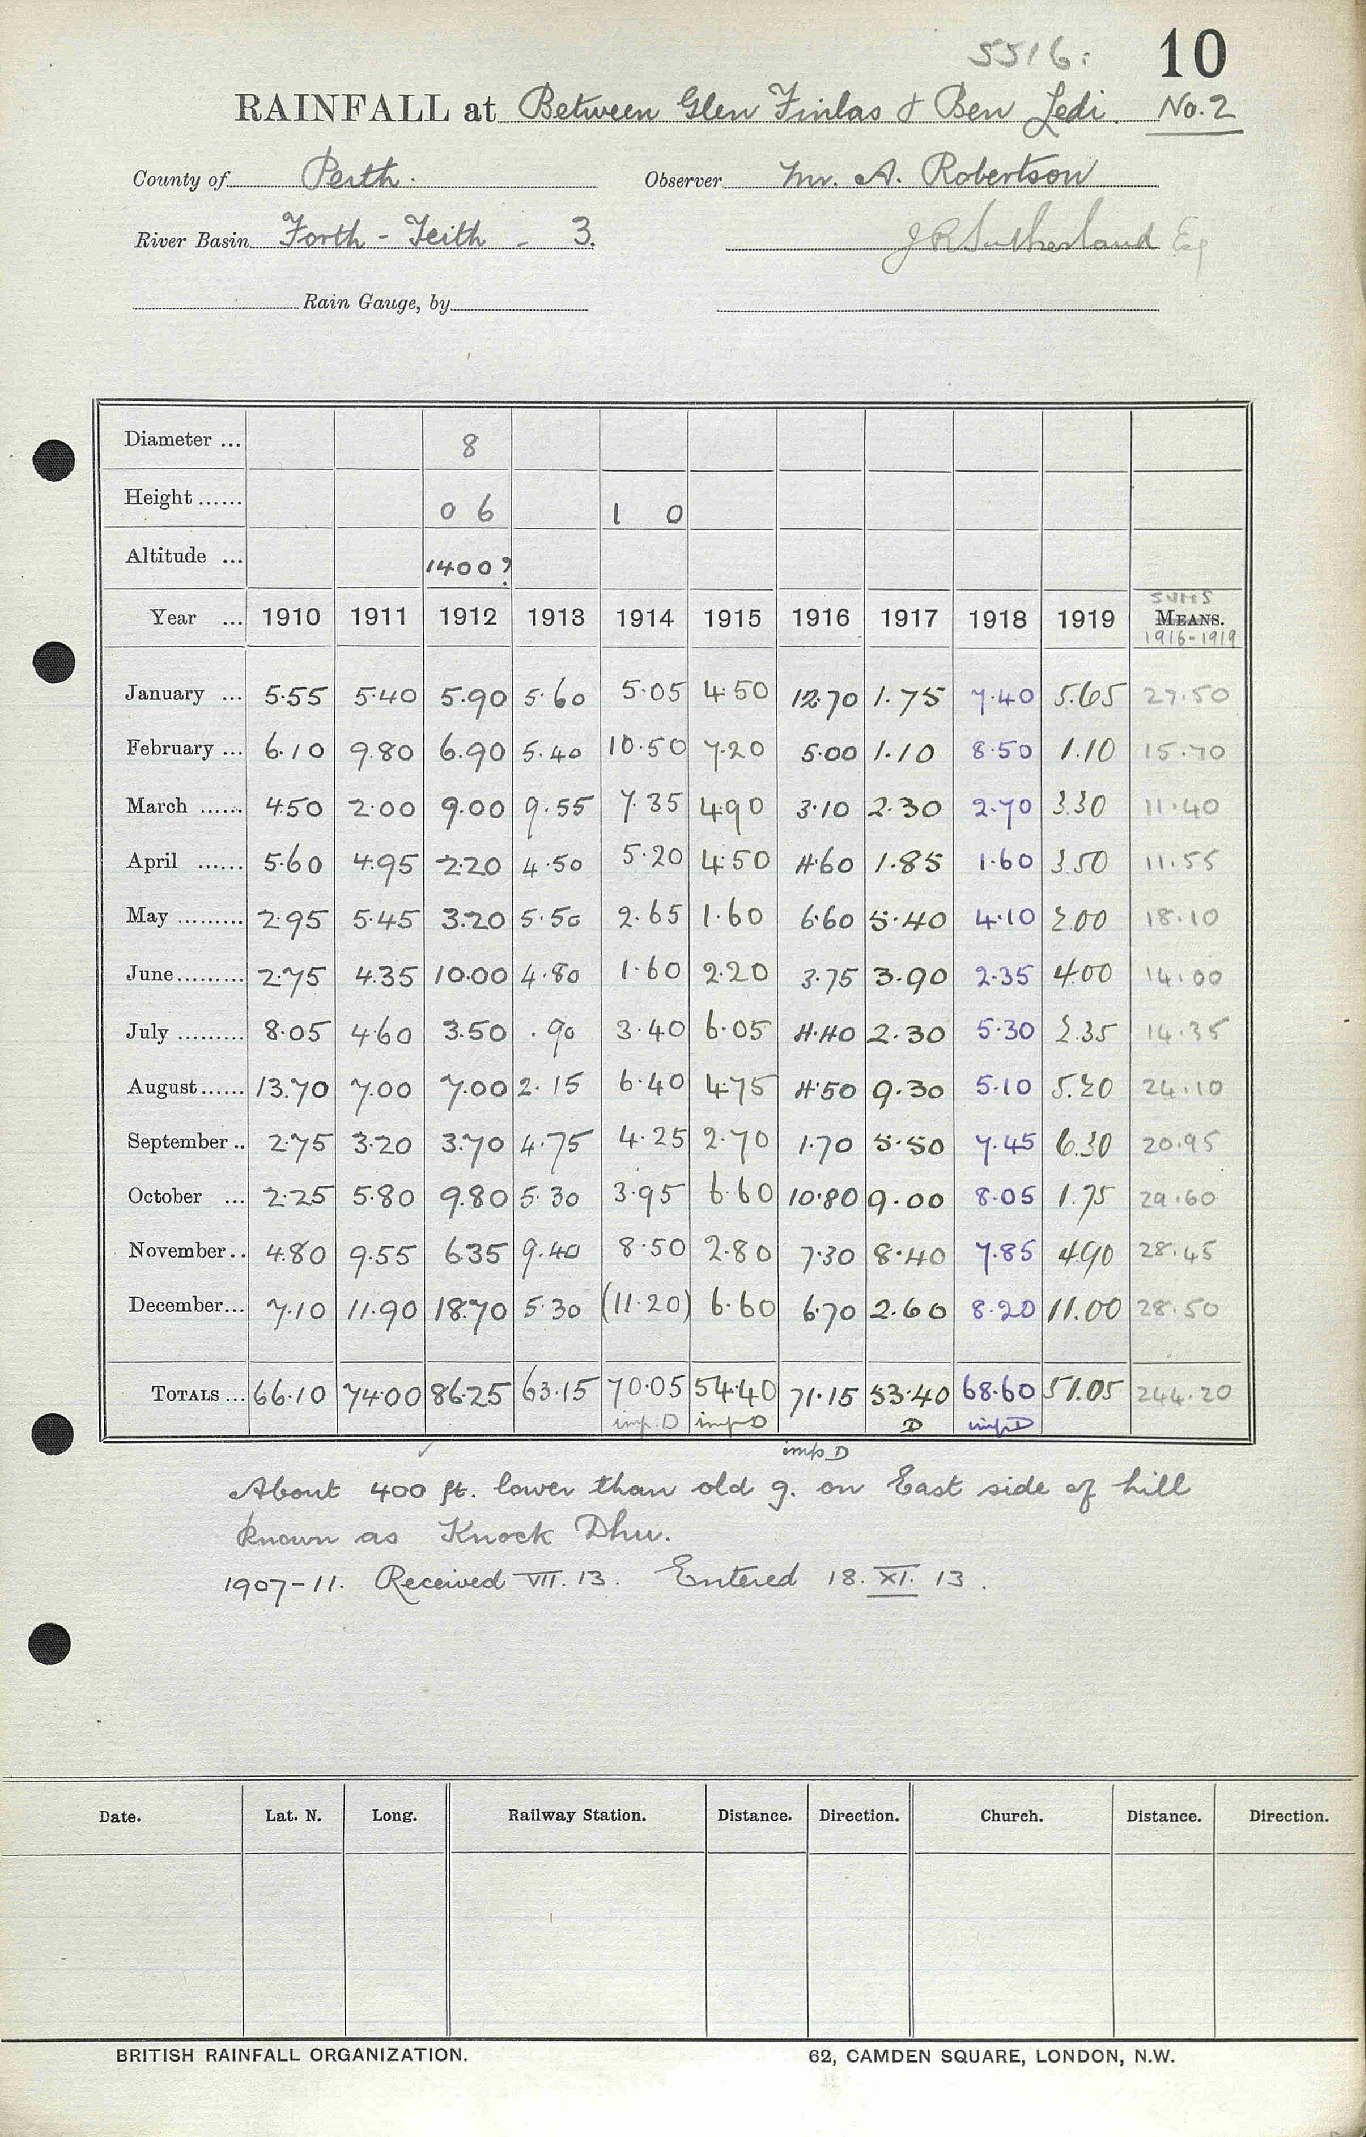 5516: 10
RAINFALL at Between Glen Finlas & Ben Ledi. No. 2
County of Perth. Observer Mr. A. Robertson
River Basin Forth - Teith - 3. J R Sutherland Esq
Rain Gauge, by
Diameter ... 8
Height ...... 0 6 1 0
Altitude ... 1400?
Year ... 1910 1911 1912 1913 1914 1915 1916 1917 1918 1919 SUMS MEANS. 1916-1919
January ... 5.55 5.40 5.90 5.60 5.05 4.50 12.70 1.75 7.40 5.65 27.50
February ... 6.10 9.80 6.90 5.40 10.50 7.20 5.00 1.10 8.50 1.10 15.70
March ...... 4.50 2.00 9.00 9.55 7.35 4.90 3.10 2.30 2.70 3.30 11.40
April ...... 5.60 4.95 2.20 4.50 5.20 4.50 4.60 1.85 1.60 3.50 11.55
May ......... 2.95 5.45 3.20 5.50 2.65 1.60 6.60 5.40 4.10 2.00 18.10
June ......... 2.75 4.35 10.00 4.80 1.60 2.20 3.75 3.90 2.35 4.00 14.00
July ......... 8.05 4.60 3.50 .90 3.40 6.05 4.40 2.30 5.30 2.35 14.35
August ...... 13.70 7.00 7.00 2.15 6.40 4.75 4.50 9.30 5.10 5.20 24.10
September .. 2.75 3.20 3.70 4.75 4.25 2.70 1.70 5.50 7.45 6.30 20.95
October ... 2.25 5.80 9.80 5.30 3.95 6.60 10.80 9.00 8.05 1.75 29.60
November .. 4.80 9.55 6.35 9.40 8.50 2.80 7.30 8.40 7.85 4.90 28.45
December ... 7.10 11.90 18.70 5.30 (11.20) 6.60 6.70 2.60 8.20 11.00 28.50
TOTALS ... 66.10 74.00 86.25 63.15 70.05 54.40 71.15 53.40 68.60 51.05 244.20
imp. D imp D D imp D
imp D
About 400 ft. lower than old g. on East side of hill
known as Knock Dhu.
1907-11. Received VII. 13. Entered 18. XI. 13.
Date. Lat. N. Long. Railway Station. Distance. Direction. Church. Distance. Direction.
BRITISH RAINFALL ORGANIZATION. 62, CAMDEN SQUARE, LONDON, N.W.